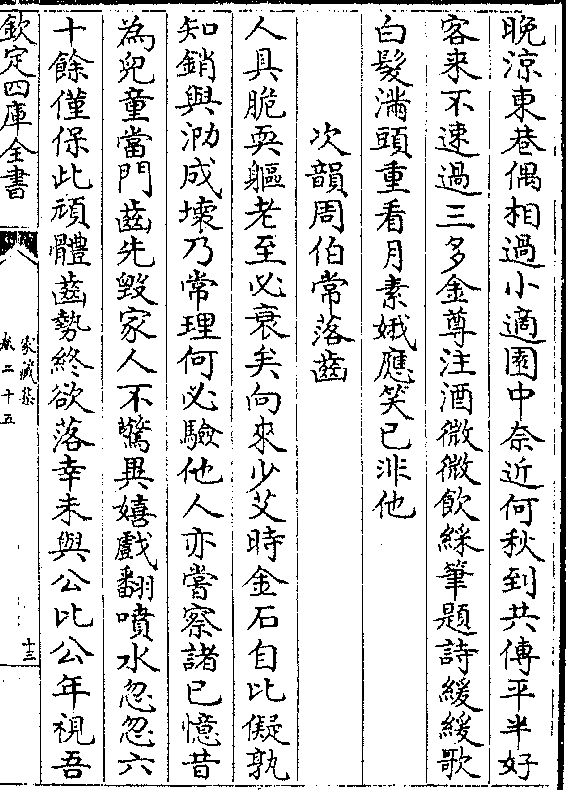 晚涼東巷偶相過小適園中奈近何秋到共傳平半好
客來不速過三多金尊注酒微微飲綵筆題詩緩緩歌
白髮滿頭重看月素娥應笑已非他
次韻周伯常落齒
人具脆耎軀老至必衰矣向來少艾時金石自比儗孰
知銷與泐成壊乃常理何必驗他人亦嘗察諸已憶昔
為兒童當門齒先毀家人不驚異嬉戲翻噴水忽忽六
十餘僅保此頑體齒勢終欲落幸未與公比公年視吾
欽定四庫全書
家藏集
卷二十五
十三